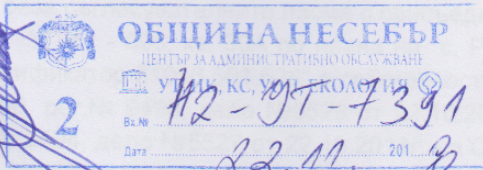 ОБЩИНА НЕСЕБЪР
ЦЕНТЪР ЗА АДМИНИСТРАТИВНО ОБСЛУЖВАНЕ
УТ, ИК, КС, УОП, ЕКОЛОГИЯ
2
Вх.№ Н2-УТ-7391
Дата 22.11. 201